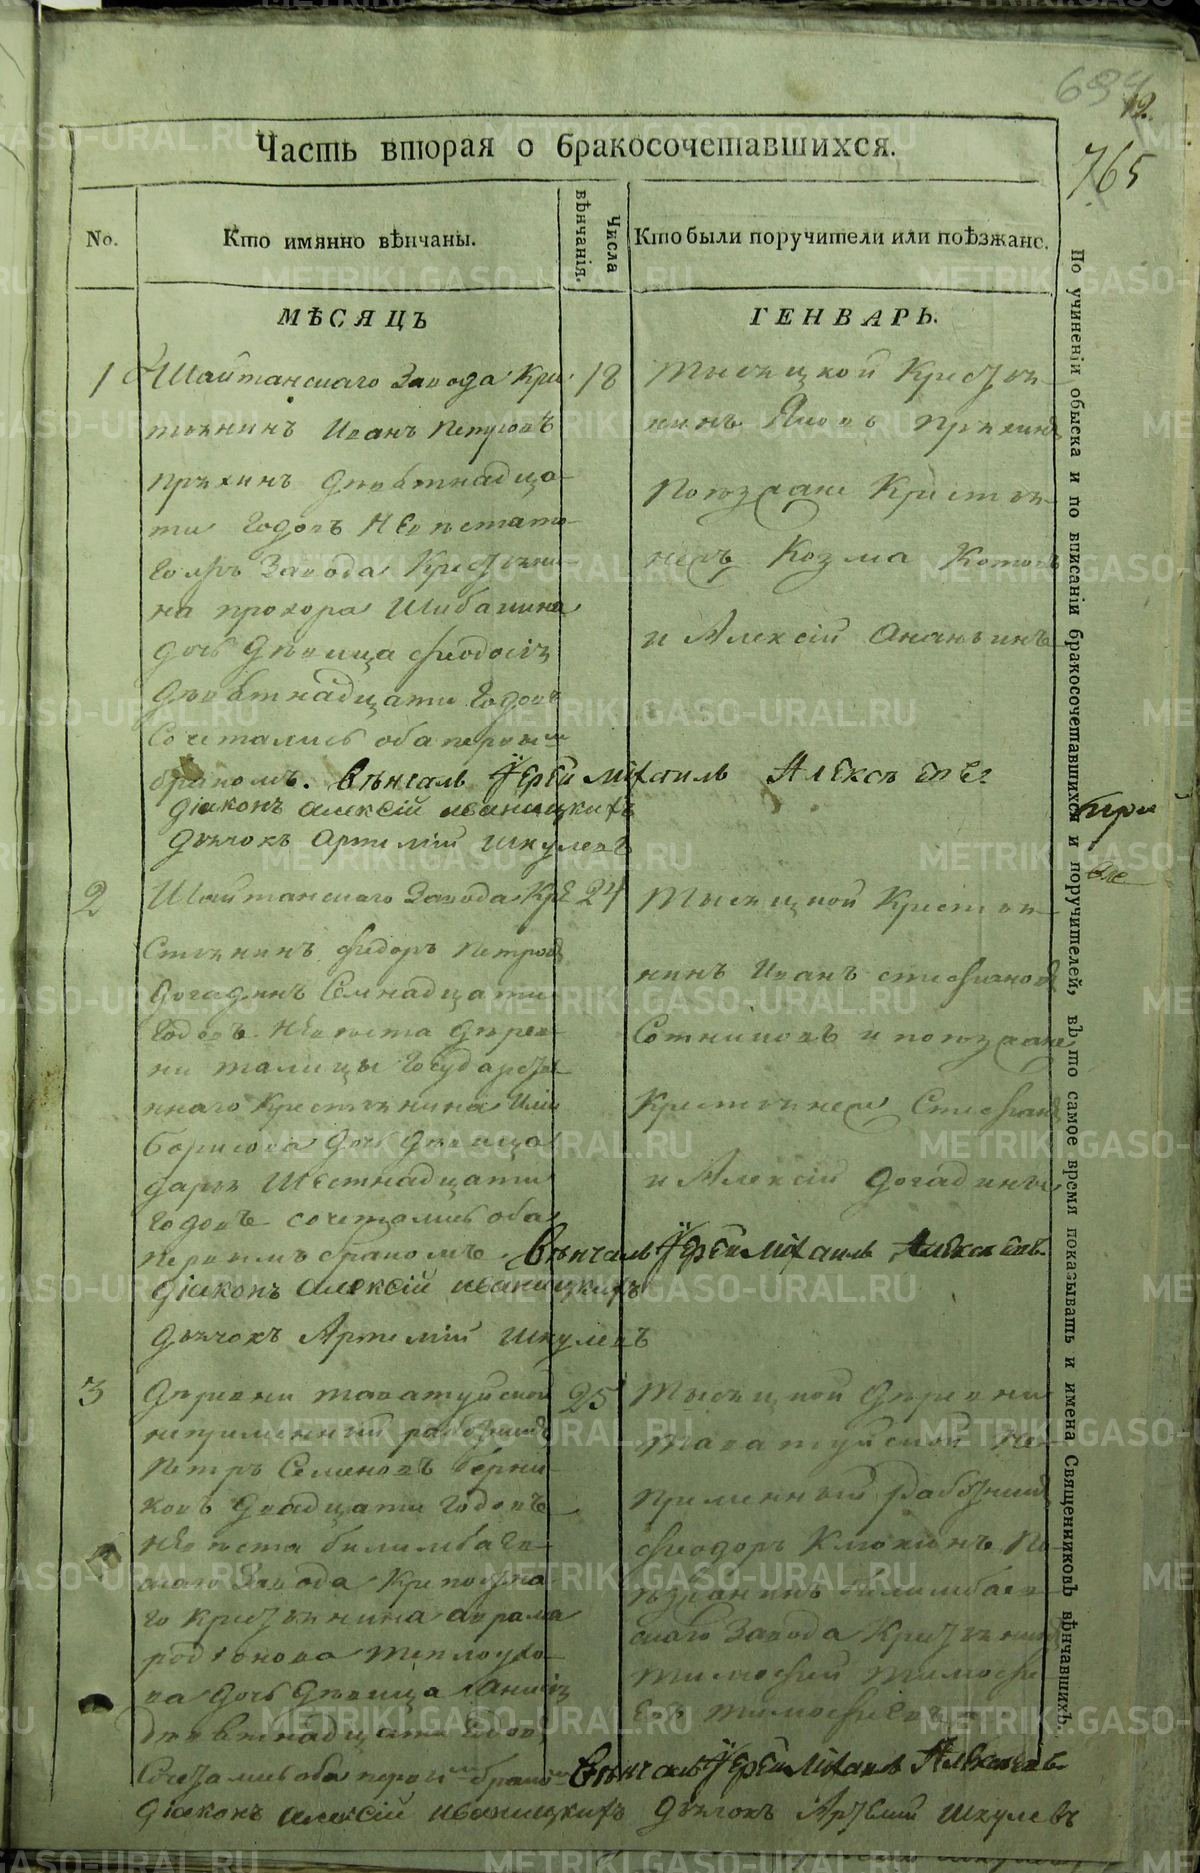 694
12.
765
Часть вторая о бракосочетавшихся.
No.
Кто имянно вѣнчаны.
Числа вѣнчанія.
Кто были поручители или поѣзжане.
МѢСЯЦЪ
ГЕНВАРЬ.
1
Шайтанскаго Завода Кре
стьянинъ Иванъ Петровъ
Пряхинъ девятнадца
ти годовъ Невѣста то
гожъ Завода Крестьяни
на Прохора Шибакина
дочь девица Феодосія
девятнадцати годовъ
Сочетались оба первымъ
бракомъ. Вѣнчалъ Іерей Михаилъ Алексѣевъ
діаконъ Алексій Иваницкихъ
дьячокъ Артемій Шкулевъ
18
Тысяцкой Крестья
нинъ Яковъ Пряхинъ
Поѣзжане Крестья
не Козма Котовъ
и Алексій Ананьинъ
2
Шайтанскаго Завода Кре
стьянинъ Федоръ Петровъ
Догадинъ Семнадцати
годовъ Невѣста дерев
ни Талицы Государст
нного Крестьянина Иліи
Борисова дочь девица
Дарья Шестнадцати
годовъ сочетались оба
первымъ бракомъ Вѣнчалъ Іерей Михаилъ Алексѣевъ
діаконъ Алексій Иваницкихъ
дьячокъ Артемій Шкулевъ
24
Тысяцкой Крестья
нинъ Иванъ Стефановъ
Сотниковъ и поѣзжане
Крестьяне Стефанъ
и Алексій Догадины
3
Деревни Таватуйской
непременный работникъ
Петръ Семеновъ Берни
ковъ двадцати годовъ
Невѣста Билимбаев
скаго Завода Крепостна
го Крестьянина Аврама
Родіонова Теплоухо
ва дочь девица Анисія
девятнадцати годовъ
Сочетались оба первымъ бракомъ Вѣнчалъ Іерей Михаилъ Алексѣевъ
діаконъ Алексій Иваницкихъ дьячокъ Артемій Шкулевъ
25
Тысяцкой деревни
Таватуйской Не
пременный работникъ
Феодоръ Клюкинъ По
ѣзжанинъ Билимбаев
скаго Завода Крестьянинъ
Тимофей Тимофе
евъ
По учиненіи обыска и по вписаніи бракосочетавшихся и поручителей, въ то самое время показывать и имена Священниковъ вѣнчавшихъ.
METRIKI.GASO-URAL.RU